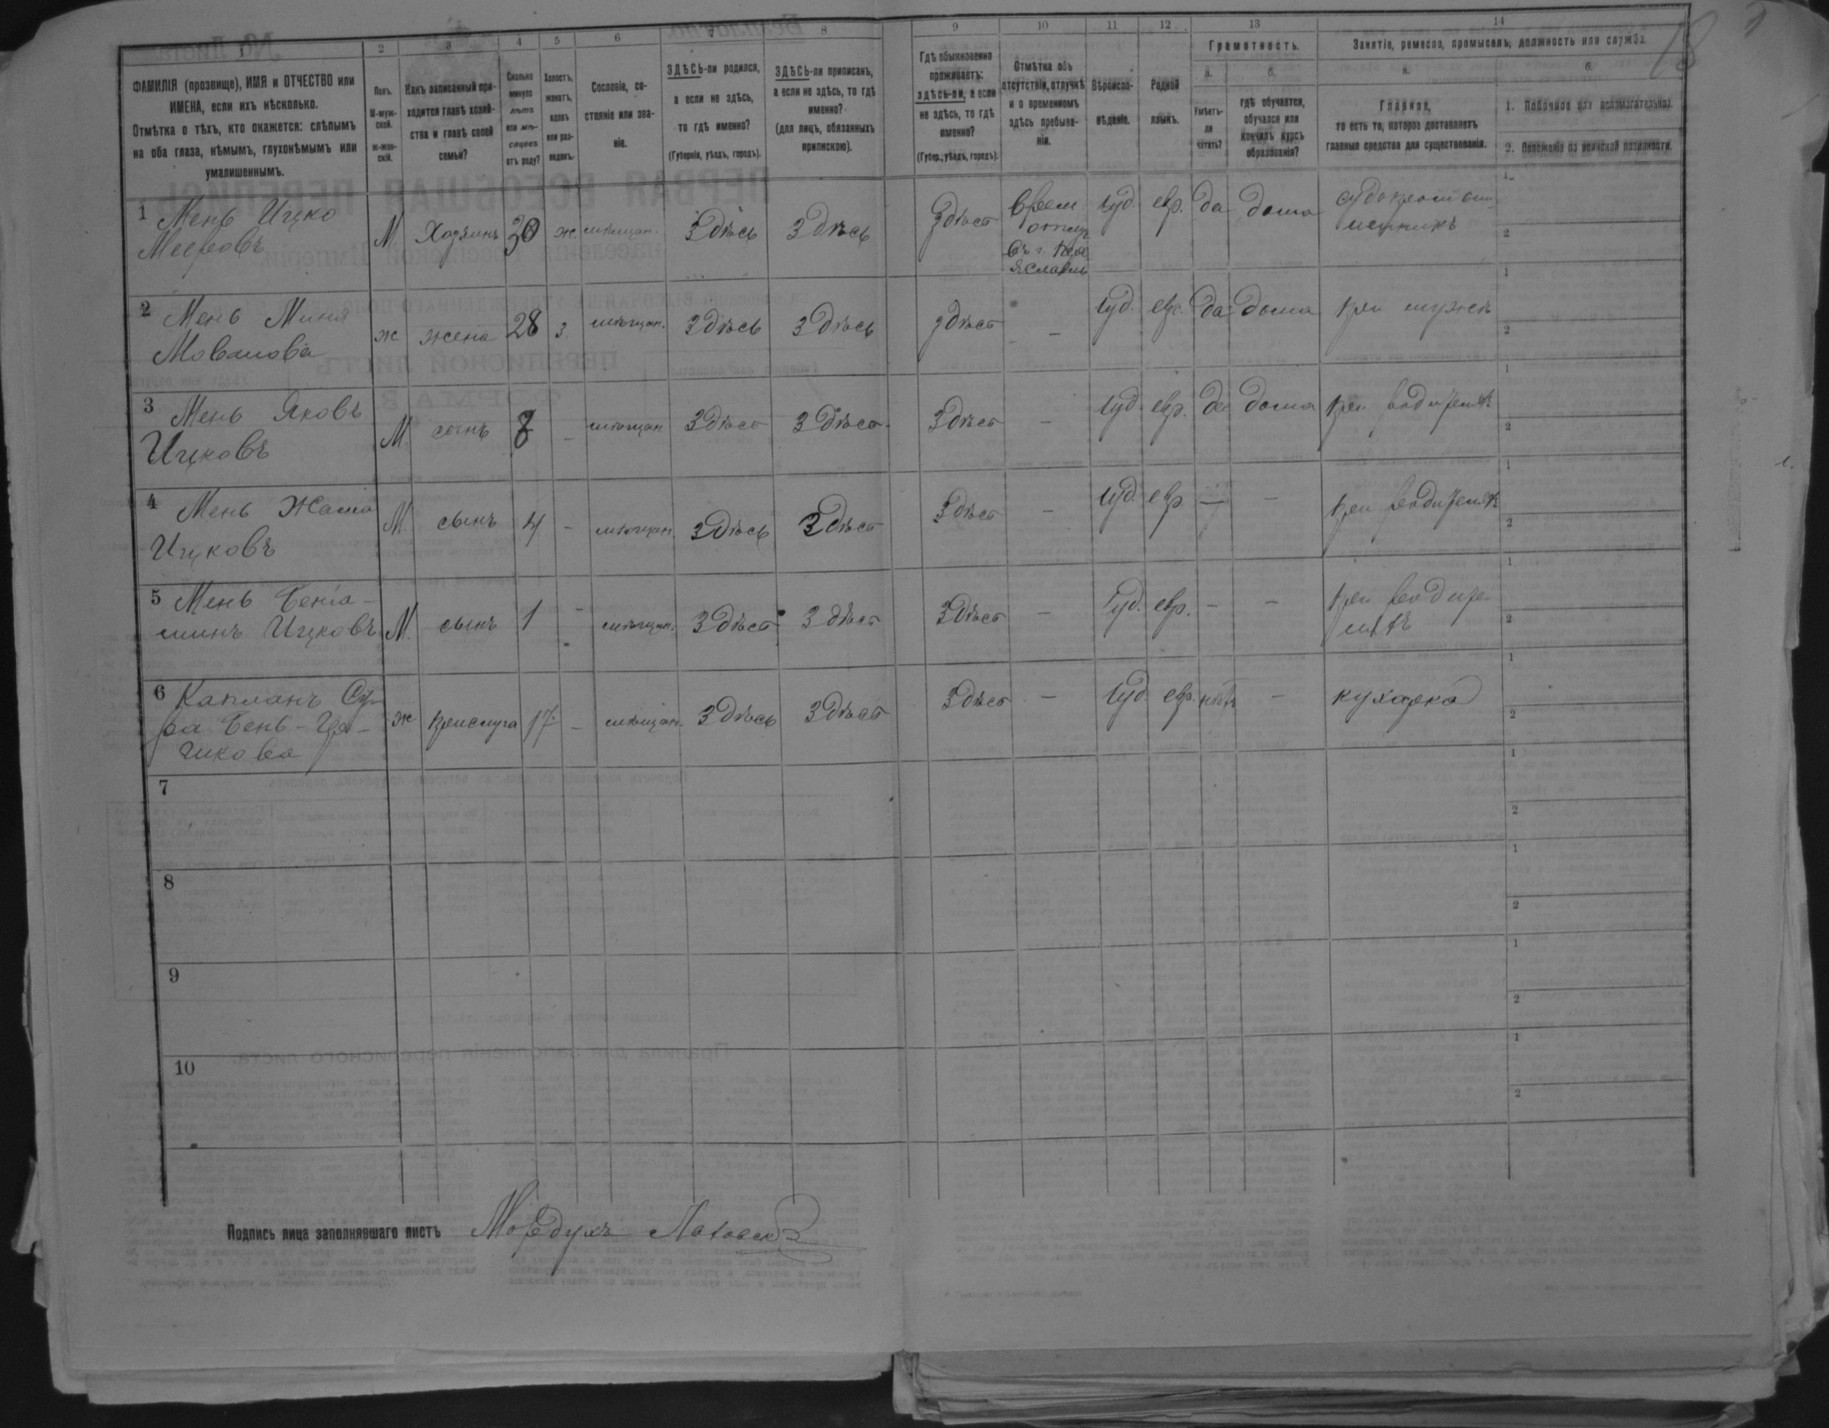 1 2 3 4 5 6 8 9 10 11 12 13 14
ФАМИЛІЯ (прозвище), ИМЯ и ОТЧЕСТВО или
ИМЕНА, если ихъ нѣсколько.
Отмѣтка о тѣхъ, кто окажется: слѣпымъ
на оба глаза, нѣмымъ, глухонѣмымъ или
умалишеннымъ.
Полъ.
М-муж-
ской.
Ж-жен-
скій.
Какъ записанный при-
ходится главѣ хозяй-
ства и главѣ своей
семьи?
Сколько
минуло
лѣтъ
или мѣ-
сяцевъ
отъ роду?
Холостъ,
женатъ,
вдовъ
или раз-
веденъ.
Сословіе, со-
стояніе или зва-
ніе.
ЗДѢСЬ-ли родился,
а если не здѣсь,
то гдѣ именно?
(Губернія, уѣздъ, городъ).
ЗДѢСЬ-ли приписанъ,
а если не здѣсь, то гдѣ
именно?
(для лицъ, обязанныхъ
припискою).
Гдѣ обыкновенно
проживаетъ:
здѣсь-ли, а если
не здѣсь, то гдѣ
именно?
(Губер., уѣздъ, городъ).
Отмѣтка объ
отсутствіи, отлучкѣ
и о временномъ
здѣсь пребыва-
ніи.
Вѣроиспо-
вѣданіе.
Родной
языкъ.
Грамотность.
а.
Умѣетъ-
ли
читать?
б.
гдѣ обучается,
обучался или
кончилъ курсъ
образованія?
Занятіе, ремесло, промыселъ, должность или служба.
а.
Главное,
то есть то, которое доставляетъ
главныя средства для существованія.
б.
1. Побочное или вспомогательное.
2. Положеніе по воинской повинности.
1 Мень Ицко М Хозяинъ 30 ж мѣщан. Здѣсь Здѣсь Здѣсь Врем. Іуд. евр. да дома
Мееровъ
2 Мень Миня ж жена 28 з. мѣщан. Здѣсь Здѣсь Здѣсь – Іуд. евр. да дома при мужѣ
Мовшова
3 Мень Яковъ М сынъ 8 – мѣщан Здѣсь Здѣсь Здѣсь – Іуд. евр. да дома при родителѣ
Ицковъ
4 Мень М сынъ 4 – мѣщан. Здѣсь Здѣсь Здѣсь – Іуд. евр – – при родителѣ
Ицковъ
5 Мень Бенiа-
минъ Ицковъ М. сынъ 1 – мѣщан. Здѣсь Здѣсь Здѣсь – Іуд. евр. – – при родите-
лѣ
6 Капланъ ж прислуга 17 – мѣщан. Здѣсь Здѣсь Здѣсь – Іуд евр. нѣтъ – кухарка
7
8
9
10
Подпись лица заполнявшаго листъ